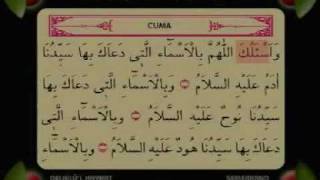 CUMA
وَاَسْئَلُكَ اللّٰهُمَّ بِالْاَسْمَٓاءِ الَّتٖى دَعَاكَ بِهَا سَيِّدُنَا
اٰدَمُ عَلَيْهِ السَّلَامُ ۞ وَبِالْاَسْمَٓاءِ الَّتٖى دَعَاكَ بِهَا
سَيِّدُنَا نُوحٌ عَلَيْهِ السَّلَامُ ۞ وَبِالْاَسْمَٓاءِ الَّتٖى
دَعَاكَ بِهَا سَيِّدُنَا هُودٌ عَلَيْهِ السَّلَامُ ۞ وَبِالْاَسْمَٓاءِ